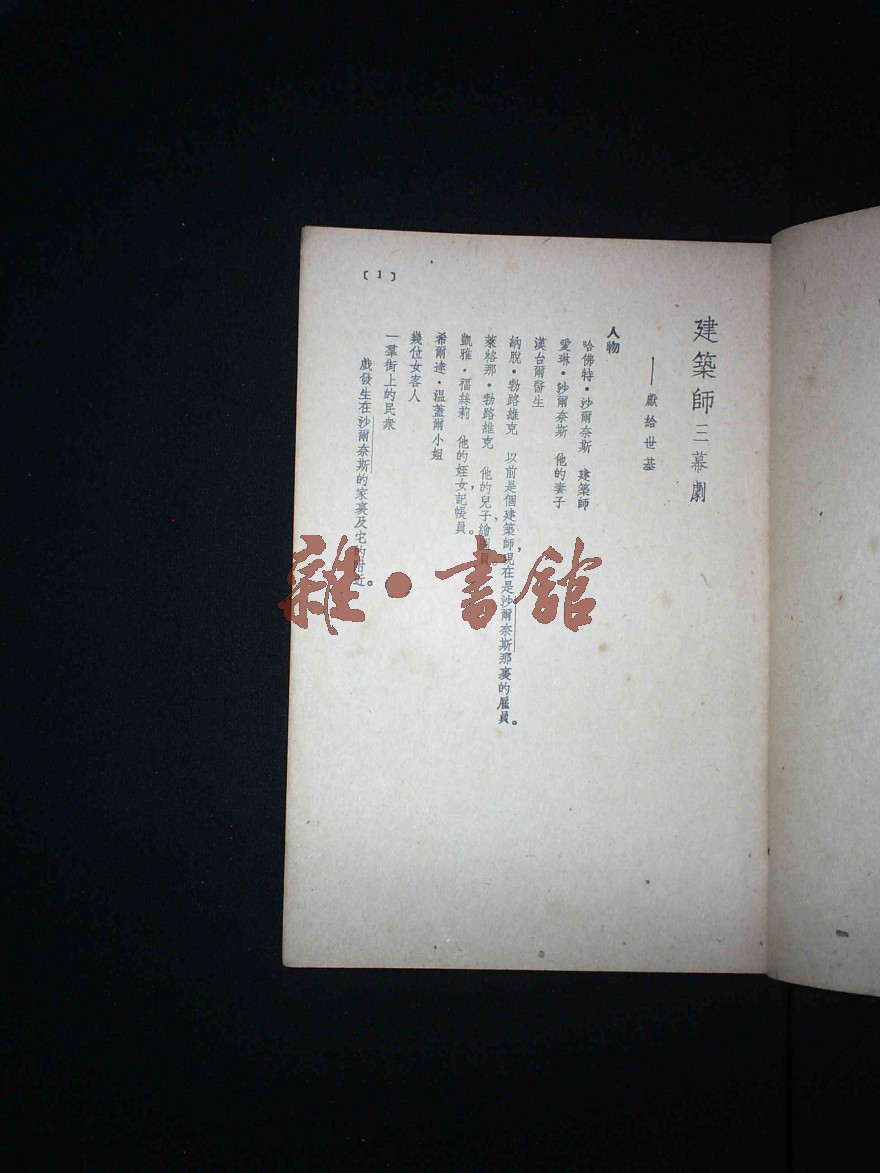 建築師 三幕劇
——獻給世基
人物
哈佛特・沙爾奈斯 建築師
愛琳・沙爾奈斯 他的妻子
漢台爾醫生
納脫・勃路維克 以前是個建築師，現在是沙爾奈斯那裏的雇員。
萊格那・勃路維克 他的兒子，繪圖員。
凱雅・福絲莉 他的姪女，記帳員。
希爾達・溫蓋爾小姐
幾位女客人
一羣街上的民衆
戲發生在沙爾奈斯的家裏及宅的附近。
〔1〕
雜・書館